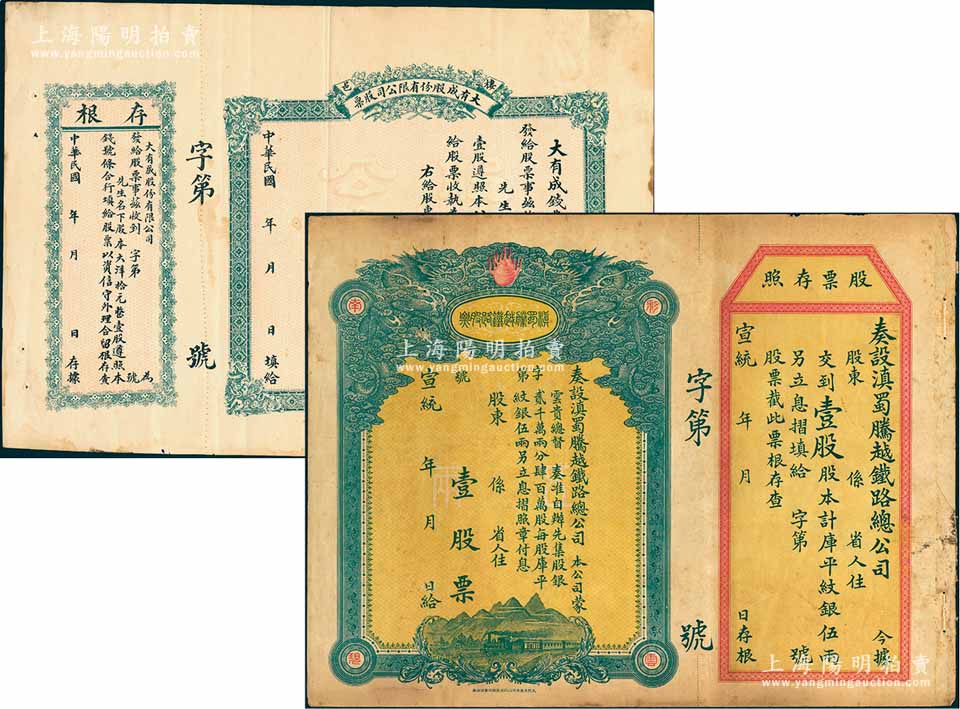 上海陽明拍賣
www.yangmingauction.com
大有成股份有限公司股票
存根
大有成股份有限公司 為
發給股票事茲收到 字第 號
先生名下股本大洋拾元整壹股遵照本
錢號條合行填給股票以資信守外理合留根存查
中華民國 年 月 日 存據
字第 號
大有成錢
發給股票事茲收到
先生
壹股遵照本
給股票收執為
右給股東
中華民國 年 月 日 填給
股票存照
奏設滇蜀騰越鐵路總公司 今據
股東 係 省人住
交到壹股股本計庫平紋銀伍兩
另立息摺填給 字第 號
股票截此票根存查
宣統 年 月 日存根
字第 號
滇蜀騰越鐵路股票
南
雲
奏設滇蜀騰越鐵路總公司 本公司蒙
雲貴總督 奏准自辦先集股銀
貳千萬兩分肆百萬股每股庫平
紋銀伍兩另立息摺照章付息
字第 號
股東 係 省人住
壹股票
宣統 年 月 日給
上海陽明拍賣
www.yangmingauction.com
上海陽明拍賣
www.yangmingauction.com